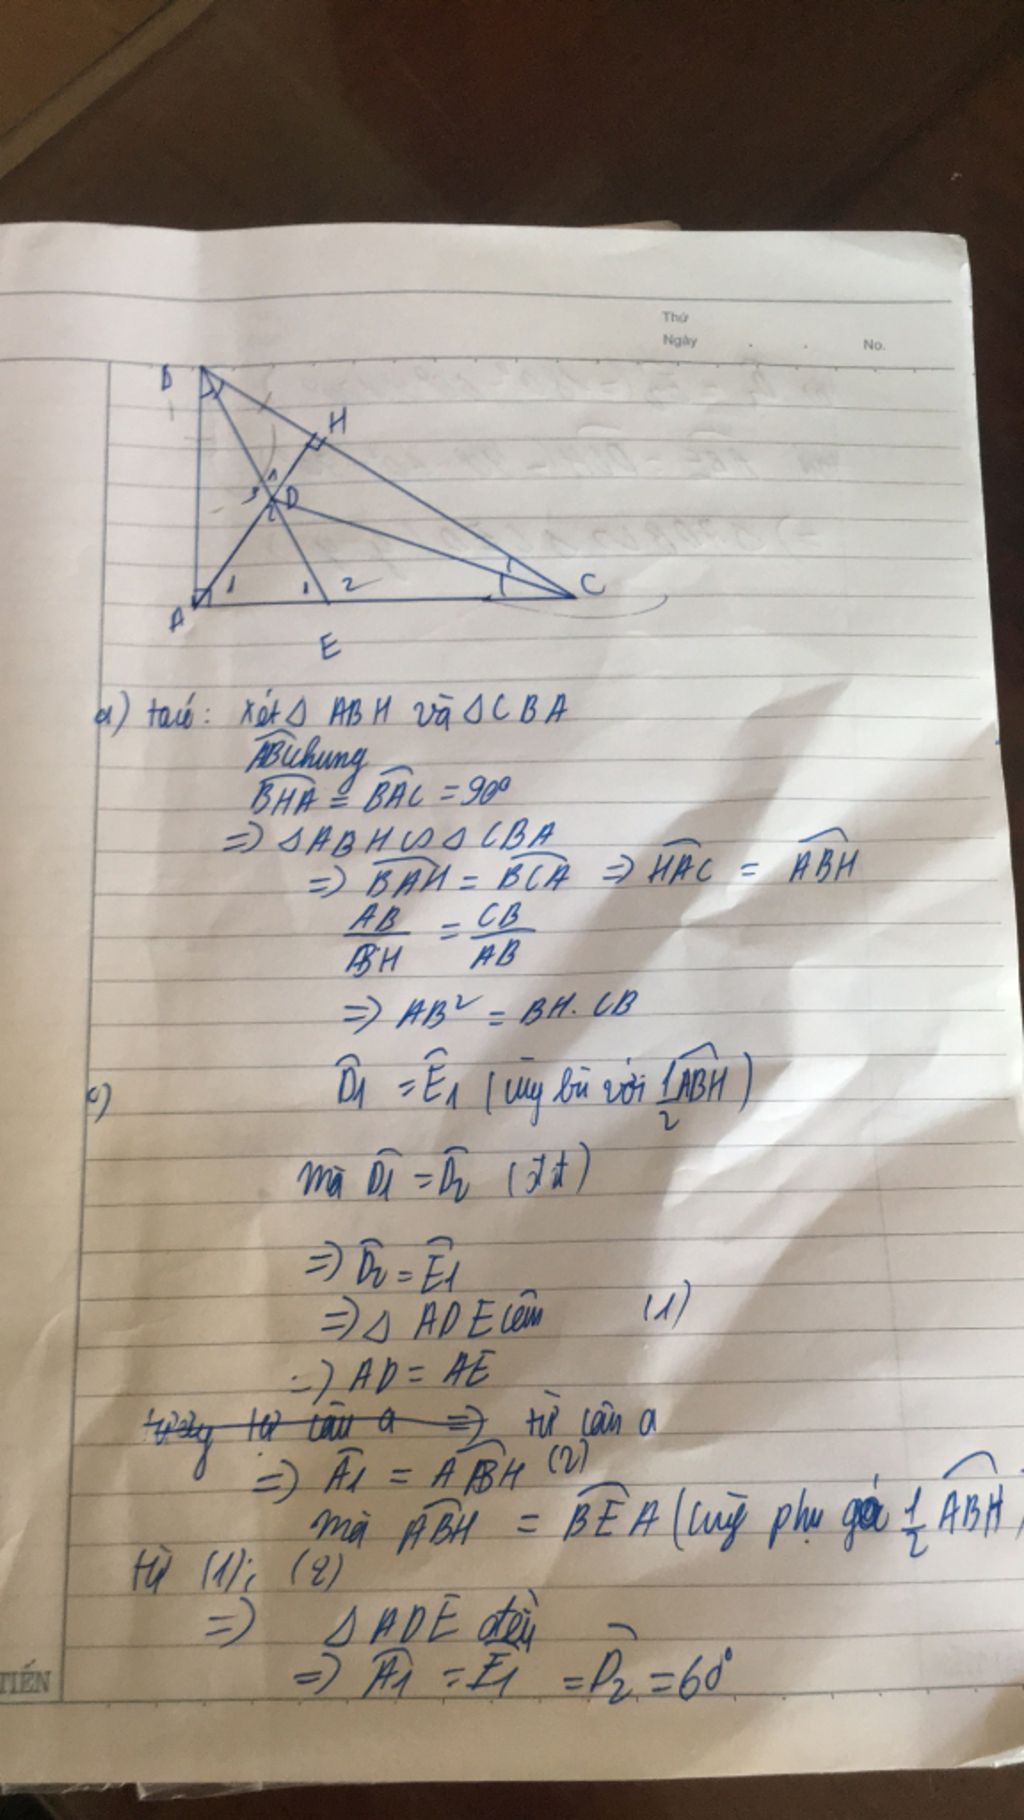 Thứ
Ngày . . No.
B
H
3 1
D
2
1 1 2
C
A
E
a) ta có: Xét Δ ABH và ΔCBA
ABC chung
BHA = BAC = 90°
=> ΔABH ∽ Δ CBA
=> BAH = BCA => HAC = ABH
AB/BH = CB/AB
=> AB² = BH. CB
c) D1 = E1 (cùng bù với 1/2 ABH)
mà D1 = D2 (đ đ)
=> D2 = E1
=> Δ ADE cân (1)
=> AD = AE
từ câu a => từ câu a
=> A1 = ABH (2)
mà ABH = BEA (cùng phụ góc 1/2 ABH)
từ (1); (2)
=> Δ ADE đều
=> A1 = E1 = D2 = 60°
TIẾN